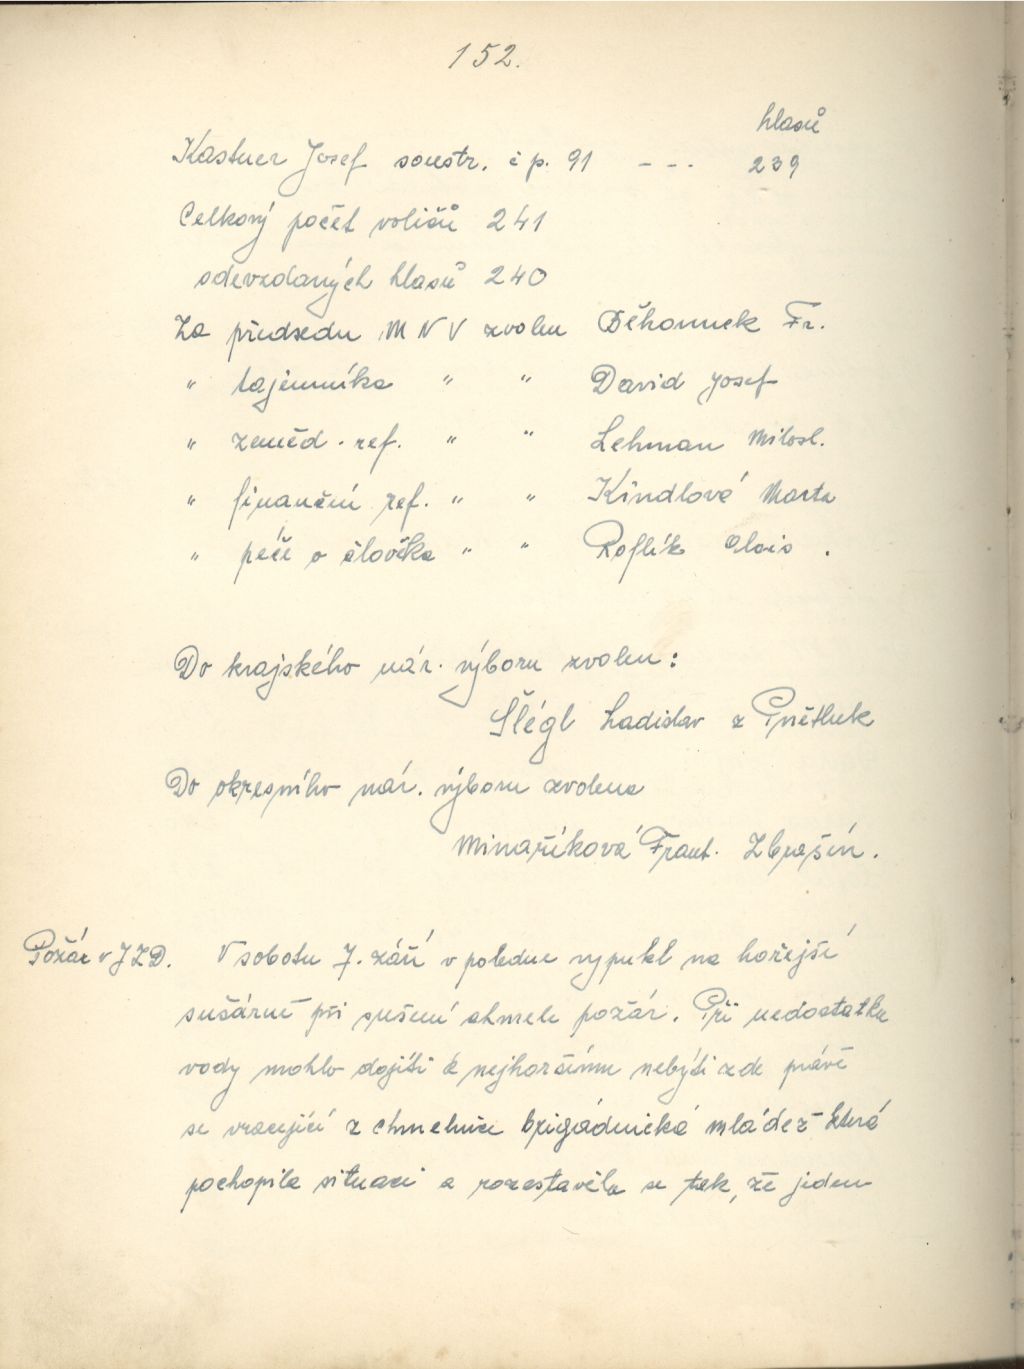 152.
hlasů
Kastner Josef soustr. čp. 91 --- 239
Celkový počet voličů 241
odevzdaných hlasů 240
Za předsedu MNV zvolen Běhounek Fr.
" tajemníka " " David Josef
" zeměd. ref. " " Lehman Milosl.
" finanční ref. " " Kindlová Marta
" péče o člověka " " Roflík Alois.
Do krajského nár. výboru zvolen:
Šlégl Ladislav z Pnětluk
Do okresního nár. výboru zvolena
Minaříková Frant. Zbrašín.
Požár v JZD. V sobotu 7. září v poledne vypukl na hořejší
sušárně při sušení chmele požár. Při nedostatku
vody mohlo dojíti k nejhoršímu nebýti zde právě
se vracející z chmelnice brigádnická mládež která
pochopila situaci a rozestavěla se tak, že jeden